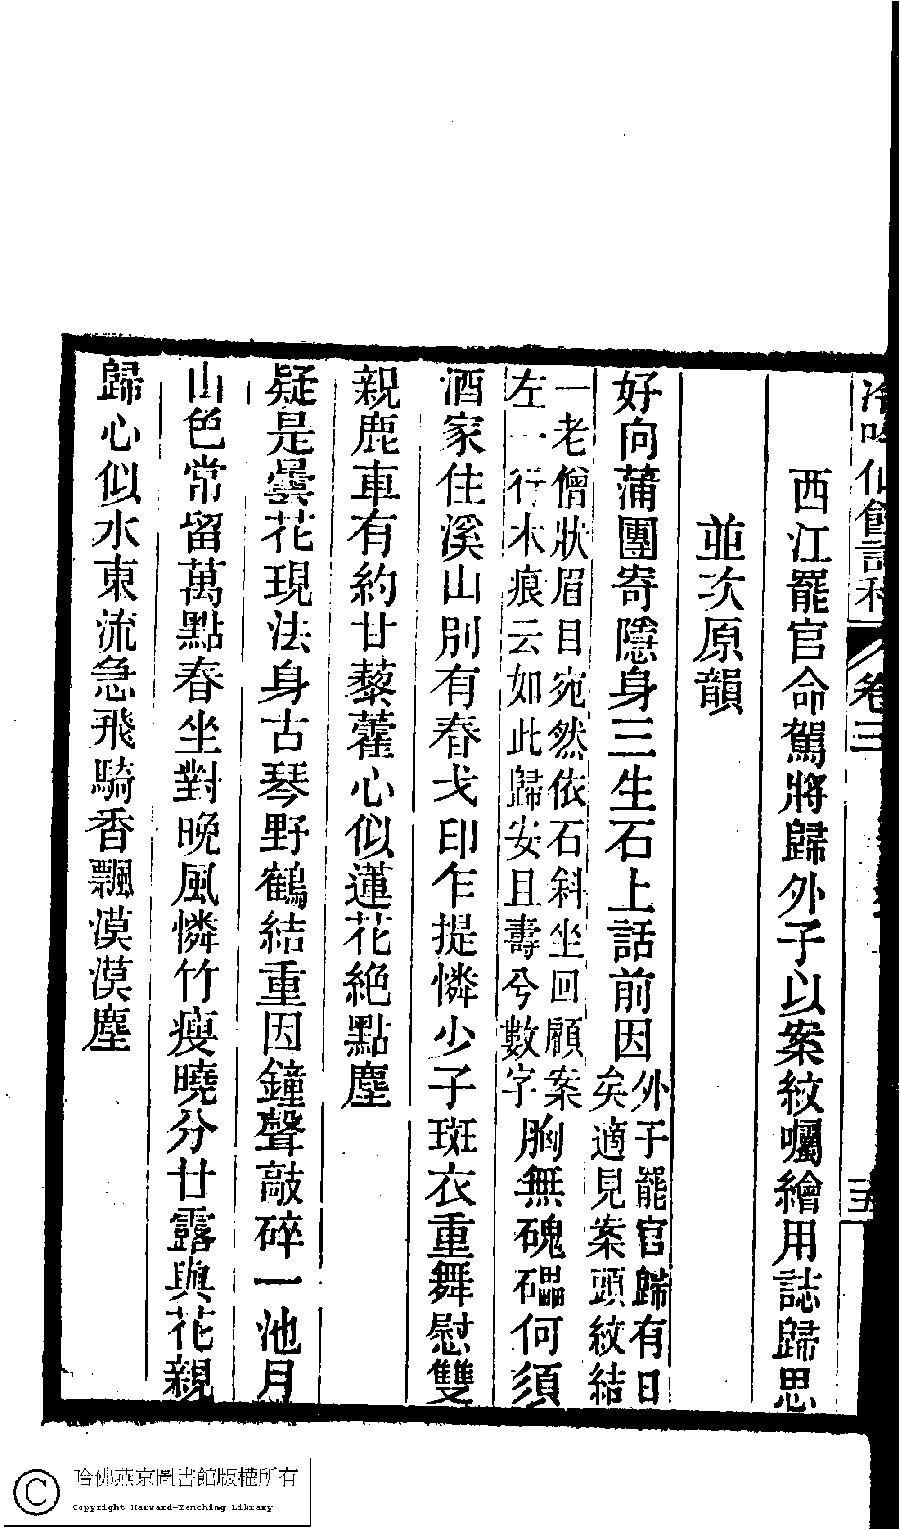 冷吟仙館詩稿 卷三
西江罷官命駕將歸外子以案紋囑繪用誌歸思
並次原韻
好向蒲團寄隱身三生石上話前因
外子罷官歸有日
矣適見案頭紋結
一老僧狀眉目宛然依石斜坐回顧案
左一行木痕云如此歸安且壽兮數字
胸無磈礧何須
酒家住溪山別有春戈印乍提憐少子斑衣重舞慰雙
親鹿車有約甘藜藿心似蓮花絶點塵
疑是曇花現法身古琴野鶴結重因鐘聲敲碎一池月
山色常留萬點春坐對晚風憐竹瘦曉分甘露與花親
歸心似水東流急飛騎香飄漠漠塵
哈佛燕京圖書館版權所有
Copyright Harvard-Yenching Library